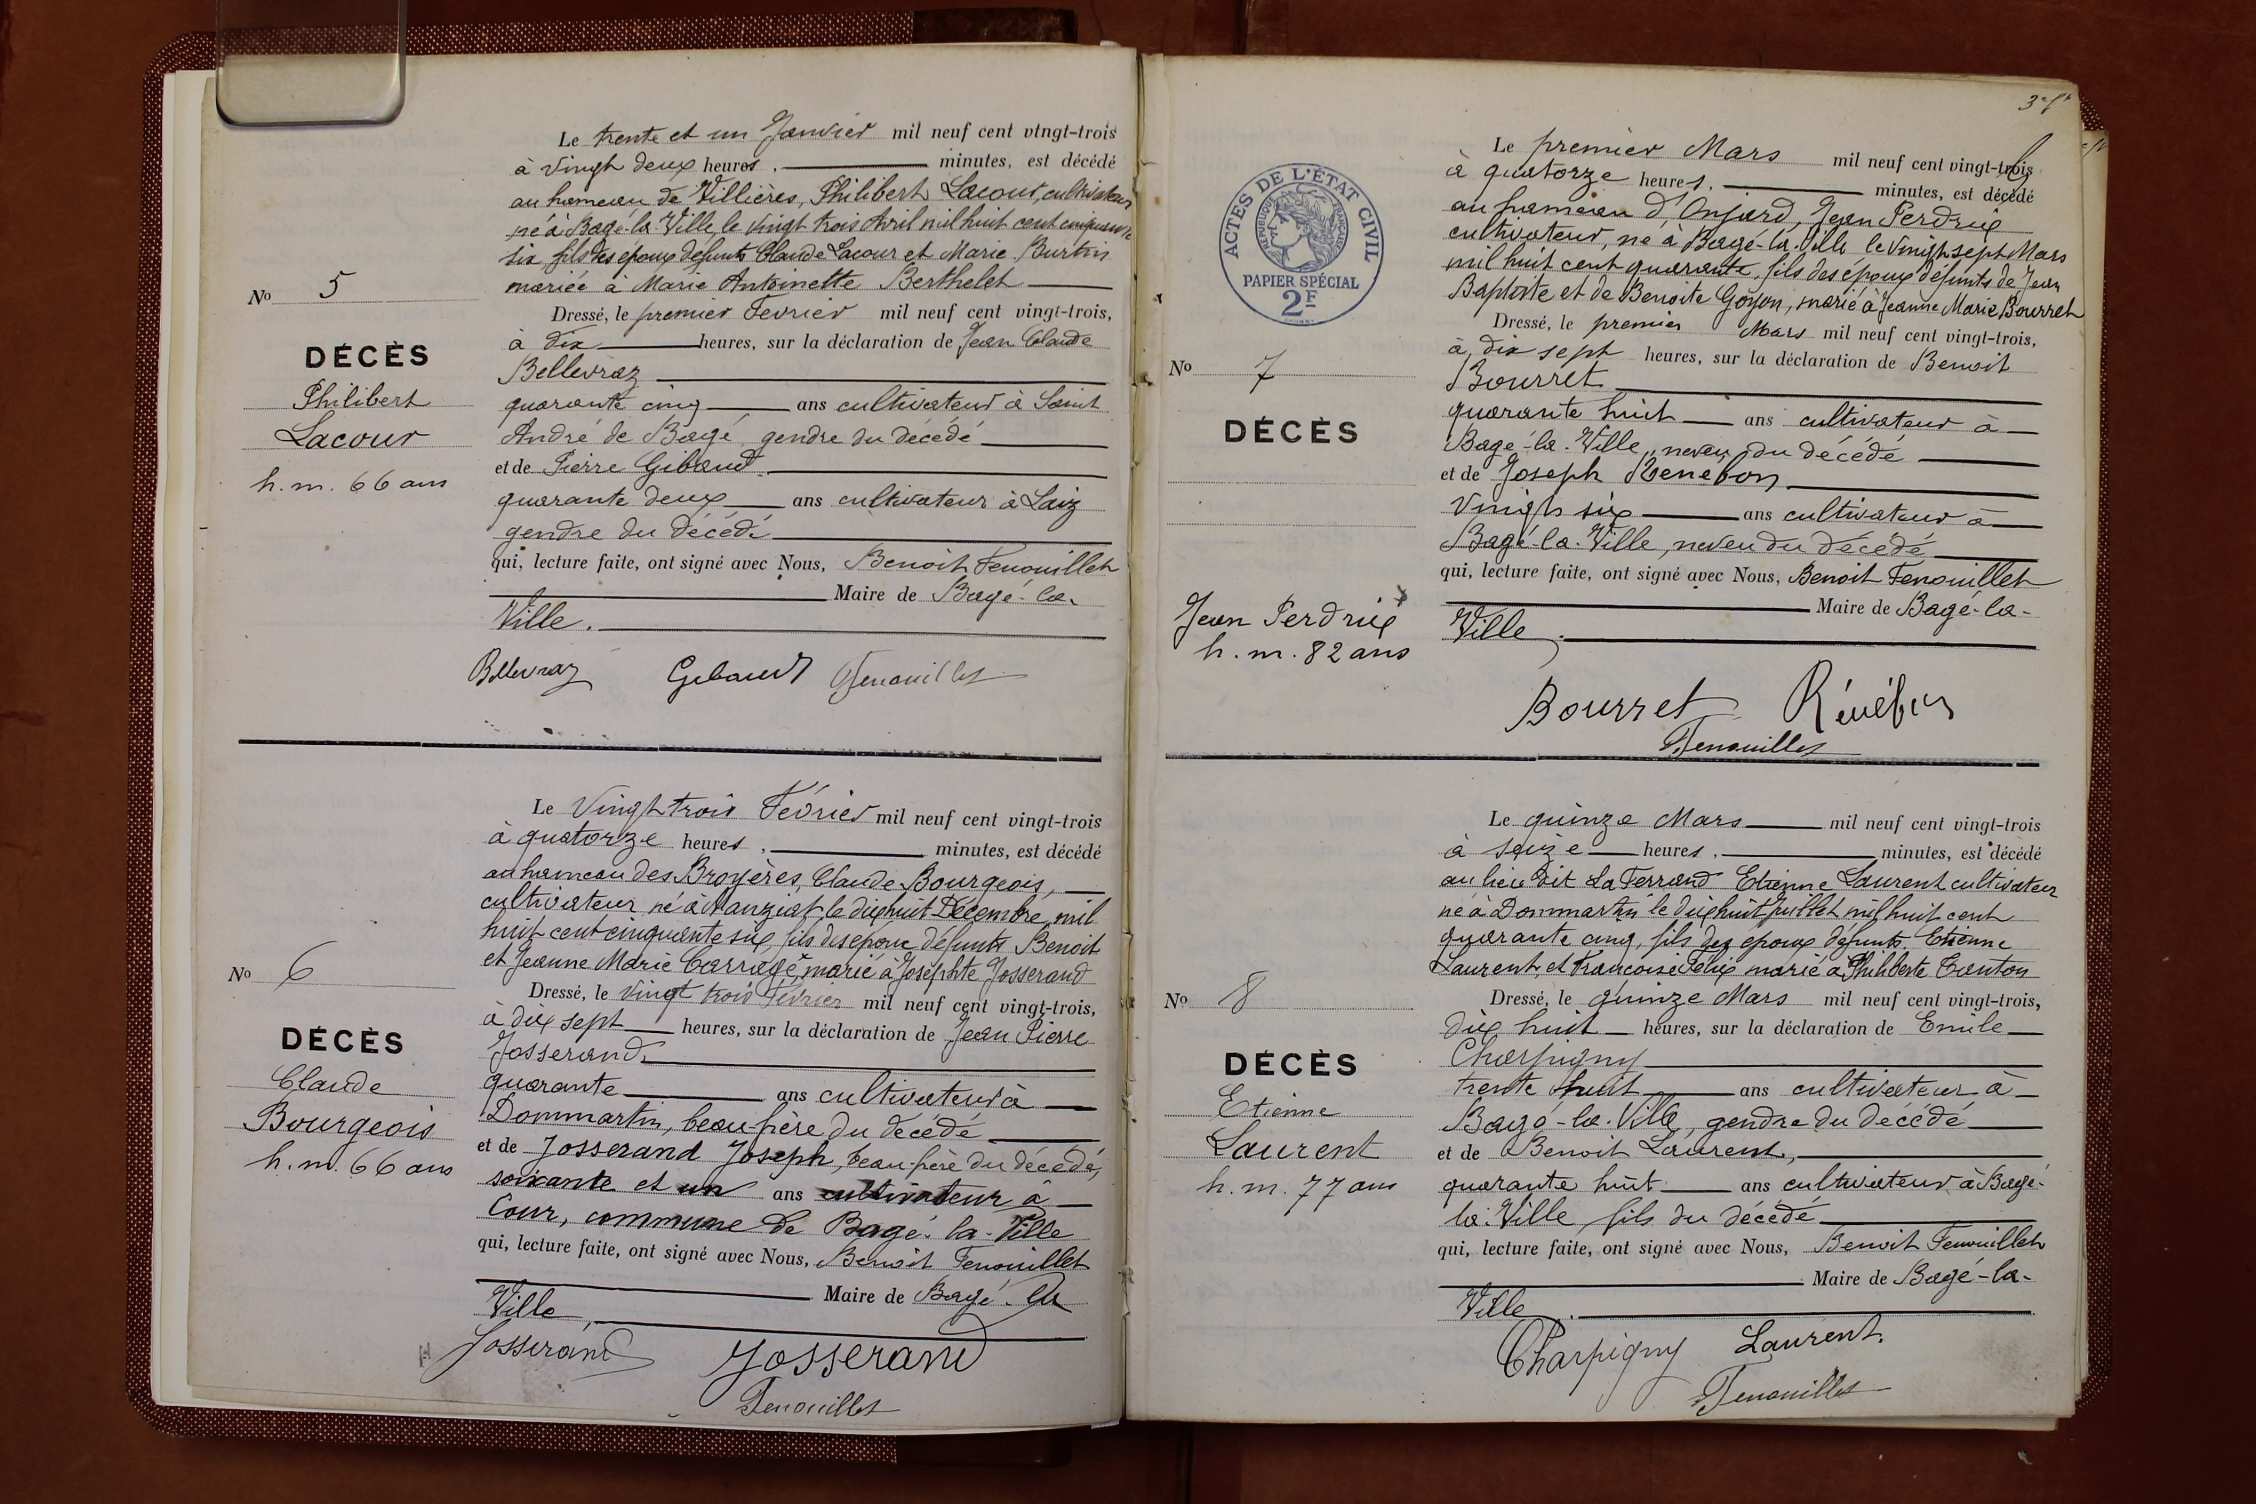 Le trente et un Janvier mil neuf cent vingt-trois
à vingt deux heures . minutes, est décédé
au hameau de Villières, Philibert Lacour, cultivateur
né à Bagé-la-Ville, le vingt trois Avril mil huit cent cinquante
six, fils des époux défunts Claude Lacour et Marie Burtin
mariée à Marie Antoinette Berthelet
No 5
DÉCÈS
Philibert
Lacour
h. m. 66 ans
Dressé, le premier Fevrier mil neuf cent vingt-trois,
à dix heures, sur la déclaration de Jean Claude
Bellevraz
quarante cinq ans cultivateur à Saint
André de Bagé gendre du décédé
et de Pierre Gibaud
quarante deux ans cultivateur à Laiz
gendre du décédé
qui, lecture faite, ont signé avec Nous, Benoit Fenouillet
Maire de Bagé-la-
Ville.
Bellevraz Gibaud Fenouillet
Le Vingt trois Février mil neuf cent vingt-trois
à quatorze heures . minutes, est décédé
au hameau des Broyères, Claude Bourgeois,
cultivateur né à Manziat le dix huit Décembre mil
huit cent cinquante six, fils des époux défunts Benoit
et Jeanne Marie Carragé, marié à Josephte Josserand
No 6
DÉCÈS
Claude
Bourgeois
h. m. 66 ans
Dressé, le vingt trois Février mil neuf cent vingt-trois,
à dix sept heures, sur la déclaration de Jean Pierre
Josserand
quarante ans cultivateur à
Dommartin, beau-frère du décédé
et de Josserand Joseph, beau-frère du décédé,
soixante et un ans cultivateur à
Cour, commune de Bagé-la-Ville
qui, lecture faite, ont signé avec Nous, Benoit Fenouillet
Maire de Bagé-la
Ville
Josserand Josserand
Fenouillet
3e f
ACTES DE L'ÉTAT CIVIL
RÉPUBLIQUE FRANÇAISE
PAPIER SPÉCIAL
2F
Le premier Mars mil neuf cent vingt-trois
à quatorze heures . minutes, est décédé
au hameau d'Onjard, Jean Perdrix
cultivateur, né à Bagé-la-Ville le vingt sept Mars
mil huit cent quarante, fils des époux défunts de Jean
Baptiste et de Benoite Goyon, marié à Jeanne Marie Bourret
No 7
DÉCÈS
Jean Perdrix
h. m. 82 ans
Dressé, le premier Mars mil neuf cent vingt-trois,
à dix sept heures, sur la déclaration de Benoit
Bourret
quarante huit ans cultivateur à
Bagé-la-Ville, neveu du décédé
et de Joseph Renebon
vingt six ans cultivateur à
Bagé-la-Ville, neveu du décédé
qui, lecture faite, ont signé avec Nous, Benoit Fenouillet
Maire de Bagé-la-
Ville.
Bourret Rénébon
Fenouillet
Le quinze Mars mil neuf cent vingt-trois
à seize heures . minutes, est décédé
au lieu dit La Ferrand Etienne Laurent cultivateur
né à Dommartin le dix huit juillet mil huit cent
quarante cinq, fils des époux défunts Etienne
Laurent, et Francoise Félix marié à Philiberte Canton
No 8
DÉCÈS
Etienne
Laurent
h. m. 77 ans
Dressé, le quinze Mars mil neuf cent vingt-trois,
dix huit heures, sur la déclaration de Emile
Charpigny
trente huit ans cultivateur à
Bagé-la-Ville, gendre du décédé
et de Benoit Laurent,
quarante huit ans cultivateur à Bagé-
la-Ville fils du décédé
qui, lecture faite, ont signé avec Nous, Benoit Fenouillet
Maire de Bagé-la-
Ville.
Charpigny Laurent
Fenouillet